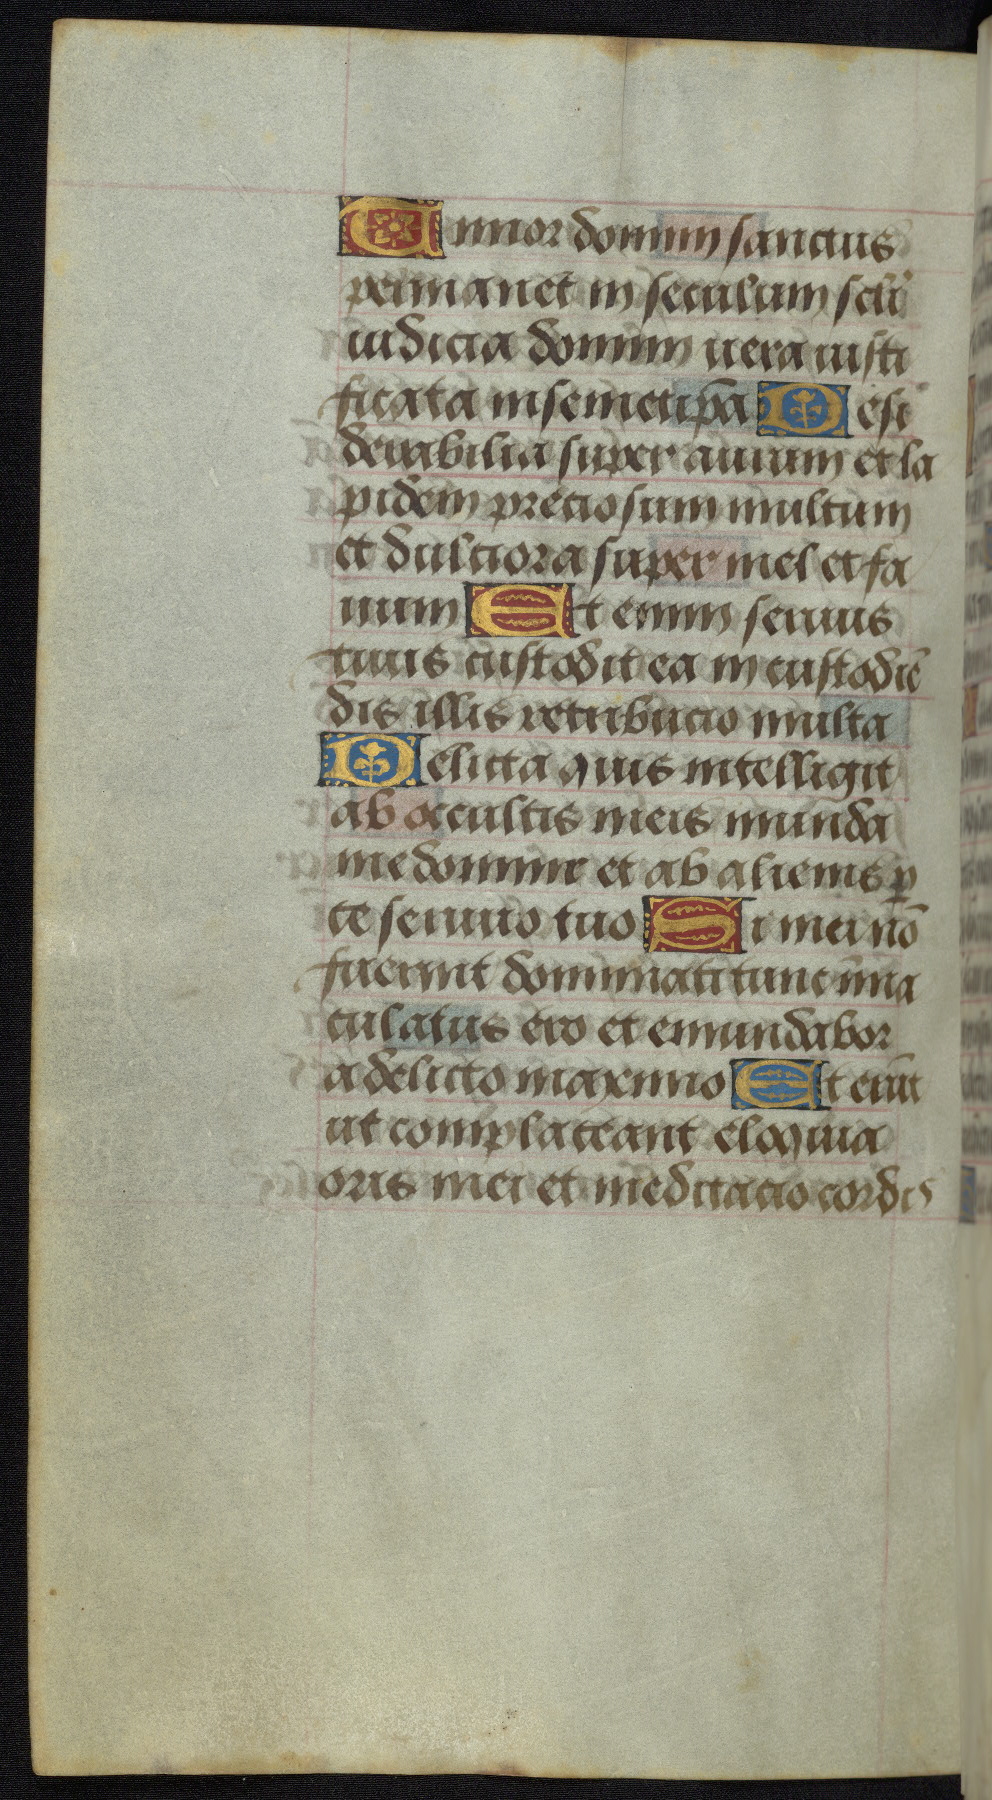 Timor domini sanctus
permanet in seculum sclī
iudicia domini uera iusti
ficata in semetip̄a Desi
derabilia super aurum et la
pidem preciosum multum
et dulciora super mel et fa
uum Et enim seruus
tuus custodit ea in custodiē
dis illis retribucio multa
Delicta quis intelligit
ab occultis meis munda
me domine et ab alienis ꝑ
ce seruuo tuo Si mei nō
fuerint dominati tunc īma
culatus ero et emundabor
a delicto maximo Et erūt
ut complaceant eloquia
oris mei et meditacio cordis